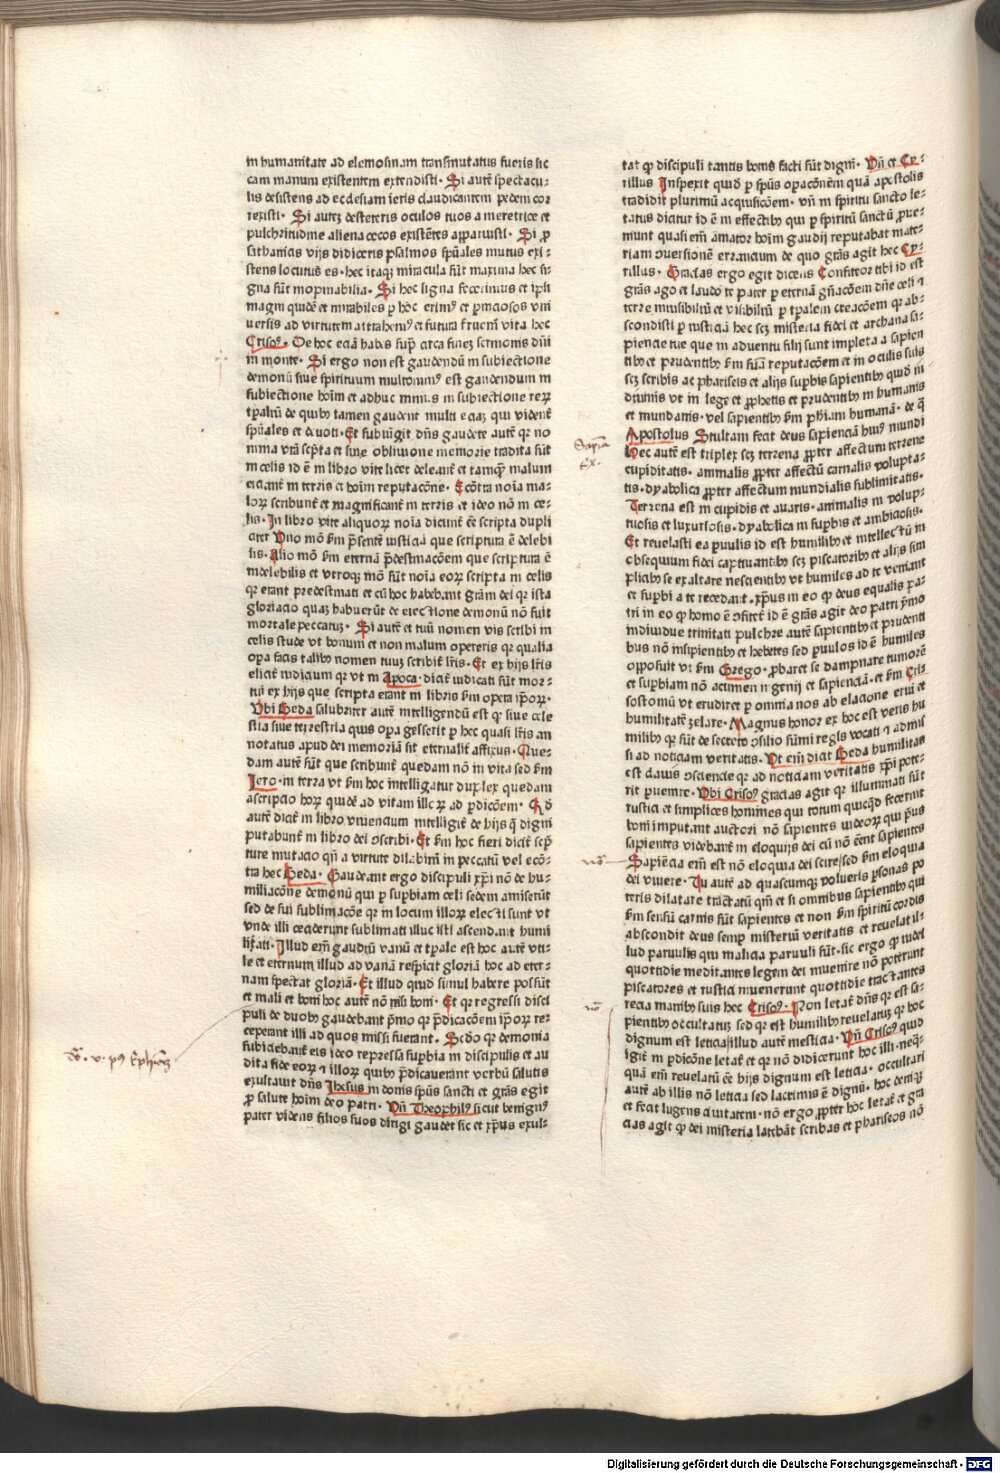 in humanitate ad elemosinam transmutatus fueris sic
cam manum existentem extendisti. Si autē spectacu-
lis desistens ad ecclesiam ieris claudicantem pedem cor
rexisti. Si autez desteteris oculos tuos a meretrice et
pulchritudine aliena cecos existētes apparuisti. Si p
sathanicis vijs didiceris psalmos spūales mutus exi-
stens locutus es. hec itaqz miracula sūt maxima hec si
gna sūt mopinabilia. Si hec signa fecerimus et ipsi
magni quidē et mirabiles p hoc erimꝰ et pniciosos vni
uersos ad virtutem attrahemꝰ et futura fruemꝰ vita hec
Crisoꝰ. De hoc eciā habis supͣ arca finez sermonis dn̄i
in monte. Si ergo non est gaudendū in subiectione
demonū siue spirituum multominꝰ est gaudendum in
subiectione hoīm et adhuc minus in subiectione reꝝ
tpaliū de quibꝫ tamen gaudent multi eciaz qui vident
spūales et deuoti. Et subiūgit dn̄s gaudete autē qꝛ no
mina vrā scpta et sine obliuione memorie tradita sūt
in celis id ē in libro vite licet deleant et tamqͣ malum
eiciant in terris et hoīm reputacōne. Ecōtra noīa ma-
loꝝ scribunt et magnificant in terris et ideo nō in ce-
lis. In libro vite aliquoꝝ noīa dicunt ēē scripta dupli
citer Vno mō ẜm pn̄sentē iusticiā que scriptura ē delebi
lis. Alio mō ẜm eternā pdestinacōem que scriptura ē
indelebilis et vtroqꝫ mō sūt noīa eoꝝ scripta in celis
qꝛ erant predestinati et cū hoc habebant grām dei qꝛ ista
gloriacio quaz habuerūt de eiectione demonū nō fuit
mortale peccatuꝫ. Si autē et tuū nomen vis scribi in
celis stude vt bonum et non malum opereris qꝛ qualia
opa facis talibꝫ nomen tuuꝫ scribēt lr̄is. Et ex hijs lr̄is
eliciet iudicium qꝛ vt in Apoca. dicit iudicati sūt mor-
tui ex hijs que scripta erant in libris ẜm opera ipoꝝ.
Vbi Beda salubriter autē intelligendū est qꝫ siue cele
stia siue terrestria quis opa gesserit p hec quasi lr̄is an
notatus apud dei memoriā sit eternalit affixus. Que-
dam autē sūt que scribunt quedam nō in vita sed ẜm
Iero. in terra vt ẜm hoc intelligatur duplex quedam
ascripcio hoꝝ quidē ad vitam illoꝝ ad pdicōem. Qd
autē dicit in libro viuencium intelligit de hijs qͥ digni
putabunt in libro dei ↄscribi. Et ẜm hoc fieri dicit scp
ture mutacio qn̄ a virtute dilabimꝰ in peccatū vel ecō-
tra hec Beda. Gaudeant ergo discipuli xpi nō de hu-
miliacōne demonū qui p supbiam celi sedem amiserūt
sed de sui sublimacōe qꝛ in locum illoꝝ electi sunt vt
vnde illi ceciderunt sublimati illuc isti ascendant humi
liati. Illud em̄ gaudiū vanū et tpale est hoc autē vti-
le et eternum illud ad vanā respicit gloriā hoc ad eter-
nam spectat gloriā. Et illud quid simul habere possūt
et mali et boni hoc autē nō nisi boni. Et qꝛ regressi disci
puli de duobꝫ gaudebant pͥmo qꝛ pdicacōem ipoꝝ re-
ceperant illi ad quos missi fuerant. Scdo qꝛ demonia
subiciebant eis ideo repressa supbia in discipulis et au
dita fide eoꝝ ⁊ illoꝝ quibꝫ pdicauerant verbū salutis
exultauit dn̄s Ihesus in donis spūs sancti et grās egit
p salute hoīm deo patri. Vn̄ Theophilꝰ sicut benignꝰ
pater videns filios suos dirigi gaudet sic et xp̄us exul-
d. v. pꝰ
tat qꝫ discipuli tantis bonis facti sūt digni. Vn̄ et Cy-
rillus Inspexit quid p spūs opacōnem quā apostolis
tradidit plurimū acquisicōem. vn̄ in spiritu sancto le-
tatus dicitur id ē in effectibꝫ qui p spiritū sanctū proue-
niunt quasi em̄ amator hoīm gaudij reputabat mate-
riam ꝯuersionē errancium de quo grās agit hec Cy-
rillus. Gracias ergo egit dicens Confiteor tibi id est
grās ago et laudo te pater p eternā gn̄acōem dn̄e celi ⁊
terre inuisibiliū et visibiliū p tpalem creacōem qꝛ ab-
scondisti p iusticiā hec scꝫ misteria fidei et archana sa-
piencie tue que in aduentu filij sunt impleta a sapien
tibꝫ et prudentibꝫ ẜm suā reputacōem et in oculis suis
scꝫ scribis ac phariseis et alijs supbis sapientibꝫ quid in
diuinis vt in lege et prophetis et prudentibꝫ in humanis
et mundanis. vel sapientibꝫ ẜm phiam humanā. de qͣ
Apostolus Stultam fecit deus sapienciā huiꝰ mundi
Hec autē est triplex scꝫ terrena propter affectum terrene
cupiditatis. animalis propter affectū carnalis volupta-
tis. dyabolica propter affectum mundialis sublimitatis.
Terrena est in cupidis et auaris. animalis in volup-
tuosis et luxuriosis. dyabolica in supbis et ambiciosis.
Et reuelasti ea puulis id est humilibꝫ et intellectū in
obsequium fidei captiuantibꝫ scꝫ piscatoribꝫ et alijs sim
plicibꝫ se exaltare nescientibꝫ vt humiles ad te veniant
et supbi a te recedant. xpus in eo qꝫ deus equalis pa-
tri in eo qꝫ homo ē ↄfitet id ē grās agit deo patri ymo
indiuidue trinitati pulchre autē sapientibꝫ et prudenti
bus nō insipientibꝫ et hebetes sed puulos id ē humiles
opposuit vt ẜm Grego. probaret se dampnare tumorē
et supbiam nō acumen ingenij et sapienciā. et ẜm Cri-
sostomū vt erudiret p omnia nos ab elacione erui et
humilitatē zelare. Magnus honor ex hoc est veris hu
milibꝫ qꝛ sūt de secreto ↄsilio sūmi regis vocati ⁊ admis
si ad noticiam veritatis. Vt em̄ dicit Beda humilitas
est clauis sciencie qꝛ ad noticiam veritatis xpi pote-
rit puenire. Vbi Crisoꝰ gracias agit qꝛ illuminati sūt
rustici et simplices homines qui totum quicqd fecerint
boni imputant auctori nō sapientes videoꝝ qui prius
sapientes videbant in eloquijs dei cū nō cēnt sapientes
Sapiēcia em̄ est nō eloquia dei scire sed ẜm eloquia
dei viuere. Tu autē ad quascumqꝫ volueris psonas po
teris dilatare tractatū qm̄ et si omnibus sapientibꝫ qui
ẜm sensū carnis sūt sapientes et non ẜm spiritū cordis
abscondit deus semp misteriū veritatis et reuelat il-
lud paruulis qui malicia paruuli sūt. sic ergo qꝫ iudei
quottidie meditantes legem dei inuenire nō poterunt
piscatores et rustici inuenerunt quottidie tractantes
recia manibꝫ suis hec Crisoꝰ. Non letat dn̄s qꝛ est sa-
pientibꝫ occultatuꝫ sed qꝛ est humilibꝫ reuelatuꝫ qꝛ hoc
dignum est leticia illud autē mesticia. Vn̄ Crisoꝰ quid
igit in pdicōne letat et qꝛ nō didicerunt hoc illi. neqꝫ-
quā em̄ reuelatū ēē hijs dignum est leticia. occultari
autē ab illis nō leticia sed lacrimis ē dignū. hoc deniqꝫ
et fecit lugens ciuitatem. nō ergo propter hoc letat et gra
cias agit qꝫ dei misteria latebāt scribas et phariseos nō
Digitalisierung gefördert durch die Deutsche Forschungsgemeinschaft - DFG